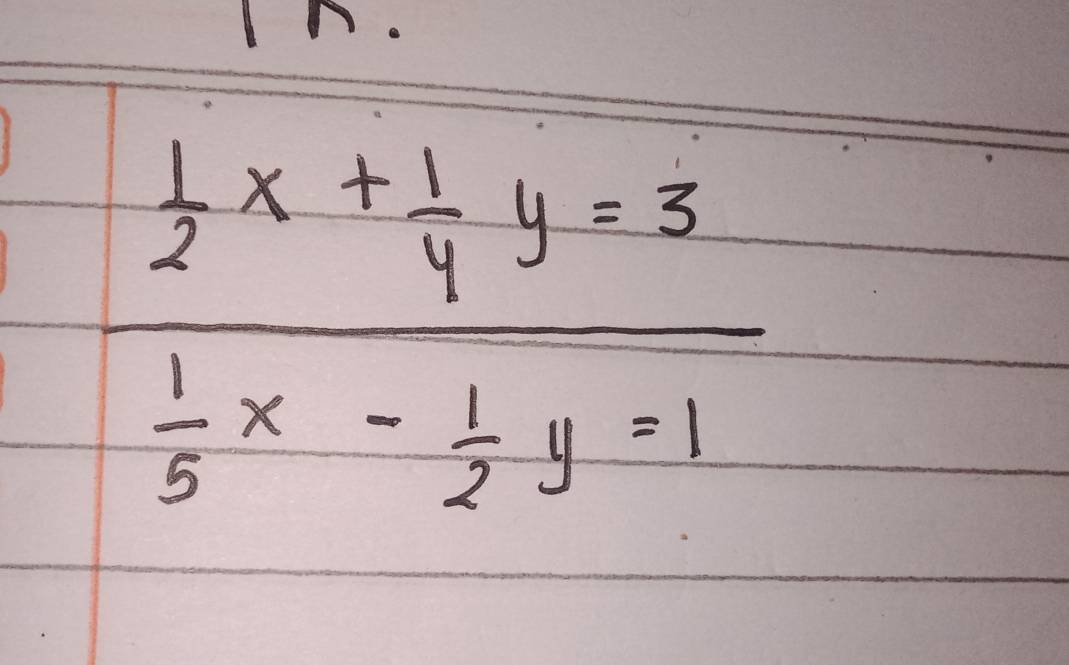 1/2 x + 1/4 y = 3
1/5 x - 1/2 y = 1